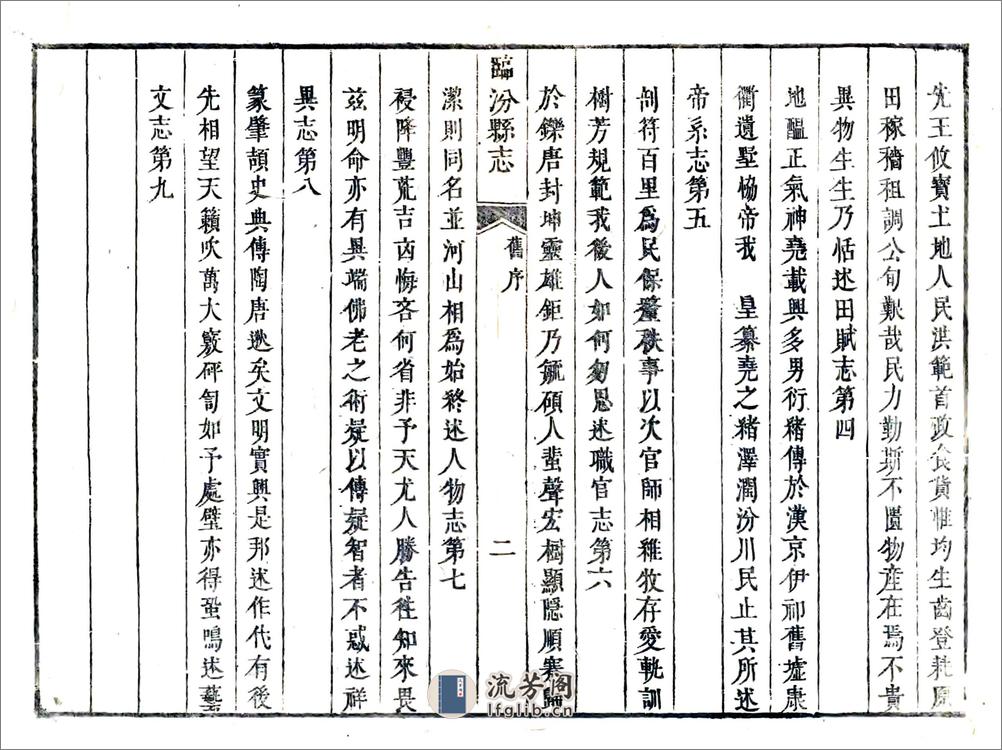 先王攸寶土地人民洪範首政食貨惟均生齒登耗原
田稼穡租調公旬艱哉民力勤斯不匱物産在焉不貴
異物生生乃恬述田賦志第四
地醞正氣神堯載興多男衍豬傳於漢京伊祁舊墟康
衢遺墅恊帝我 皇纂堯之豬澤潤汾川民止其所述
帝系志第五
剖符百里爲民保釐秩事以次官師相維牧存愛軌訓
樹芳規範我後人如何勿思述職官志第六
於鑠唐封坤靈雄鉅乃毓碩人蜚聲宏樹顯隱順寒
臨汾縣志
舊序
二
潔則同名並河山相爲始終述人物志第七
祲降豐荒吉凶悔吝何省非予天尤人勝告徃知來畏
兹明命亦有異端佛老之術疑以傳疑智者不惑述祥
異志第八
篆肇頡史典傳陶唐逖矣文明實興是邦述作代有後
先相望天籟吹萬大竅砰訇如予處壁亦得蛩鳴述藝
文志第九
流芳阁
lfglib.cn